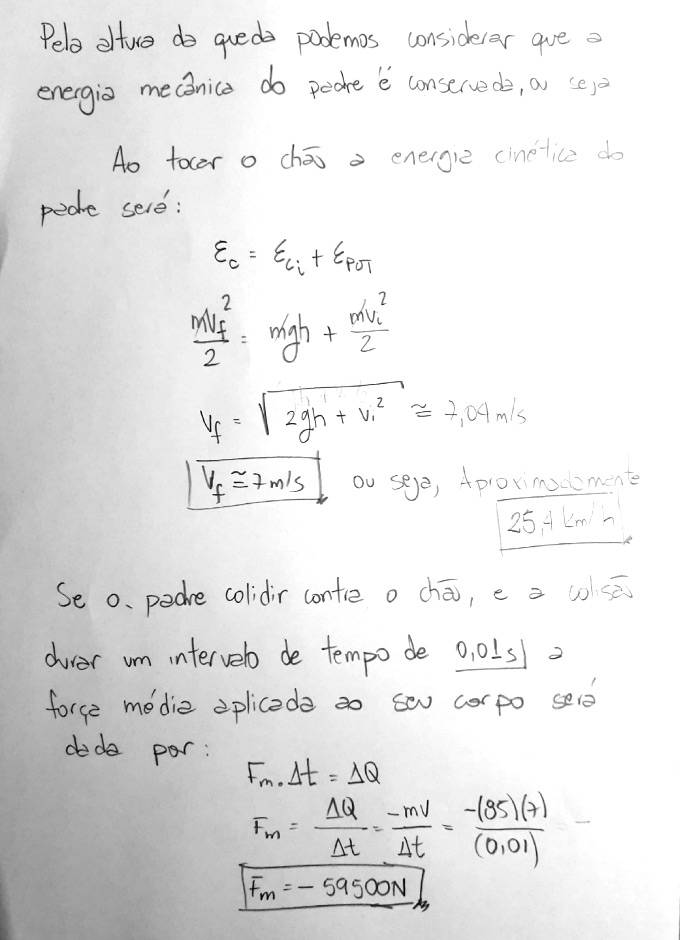 Pela altura da queda podemos considerar que a
energia mecânica do padre é conservada, ou seja
Ao tocar o chão a energia cinética do
padre será:
Ec = Eci + EPOT
mVf²/2 = mgh + mvi²/2
Vf = √(2gh + Vi²) ≅ 7,04 m/s
Vf ≅ 7 m/s ou seja, Aproximadamente
25,4 km/h
Se o padre colidir contra o chão, e a colisão
durar um intervalo de tempo de 0,01s a
força média aplicada ao seu corpo será
dada por:
Fm. Δt = ΔQ
Fm = ΔQ/Δt = -mV/Δt = -(85)(7)/(0,01) -
Fm = - 59500N